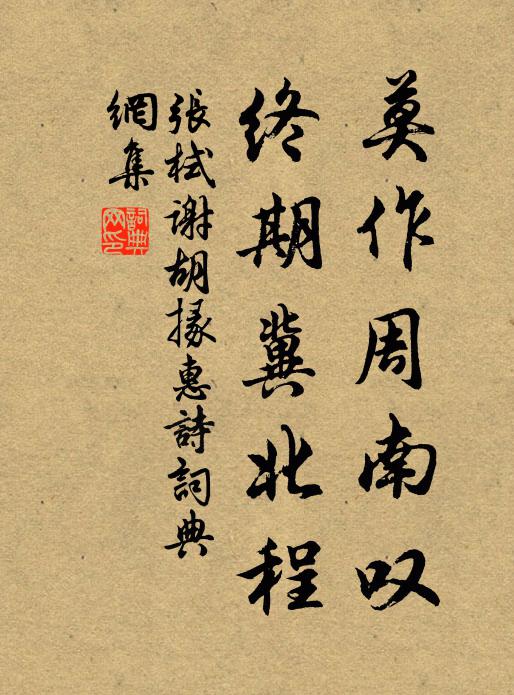 莫作周南叹
终期冀北程
張栻谢胡掾惠詩詞典
網集
詞典
网印